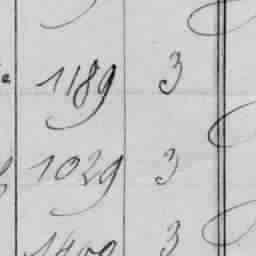 1189 3
1029 3
3